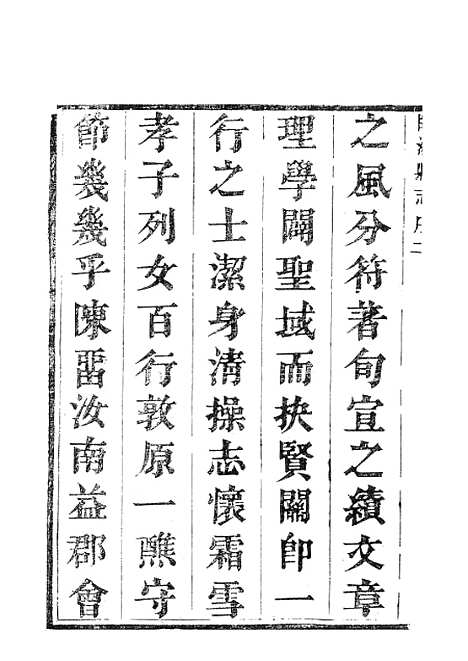 縣志序二
之風分符著旬宣之績文章
理學闢聖域而抉賢關即一
行之士潔身清操志懷霜雪
孝子列女百行敦原一醮守
節幾幾乎陳畱汝南益郡會